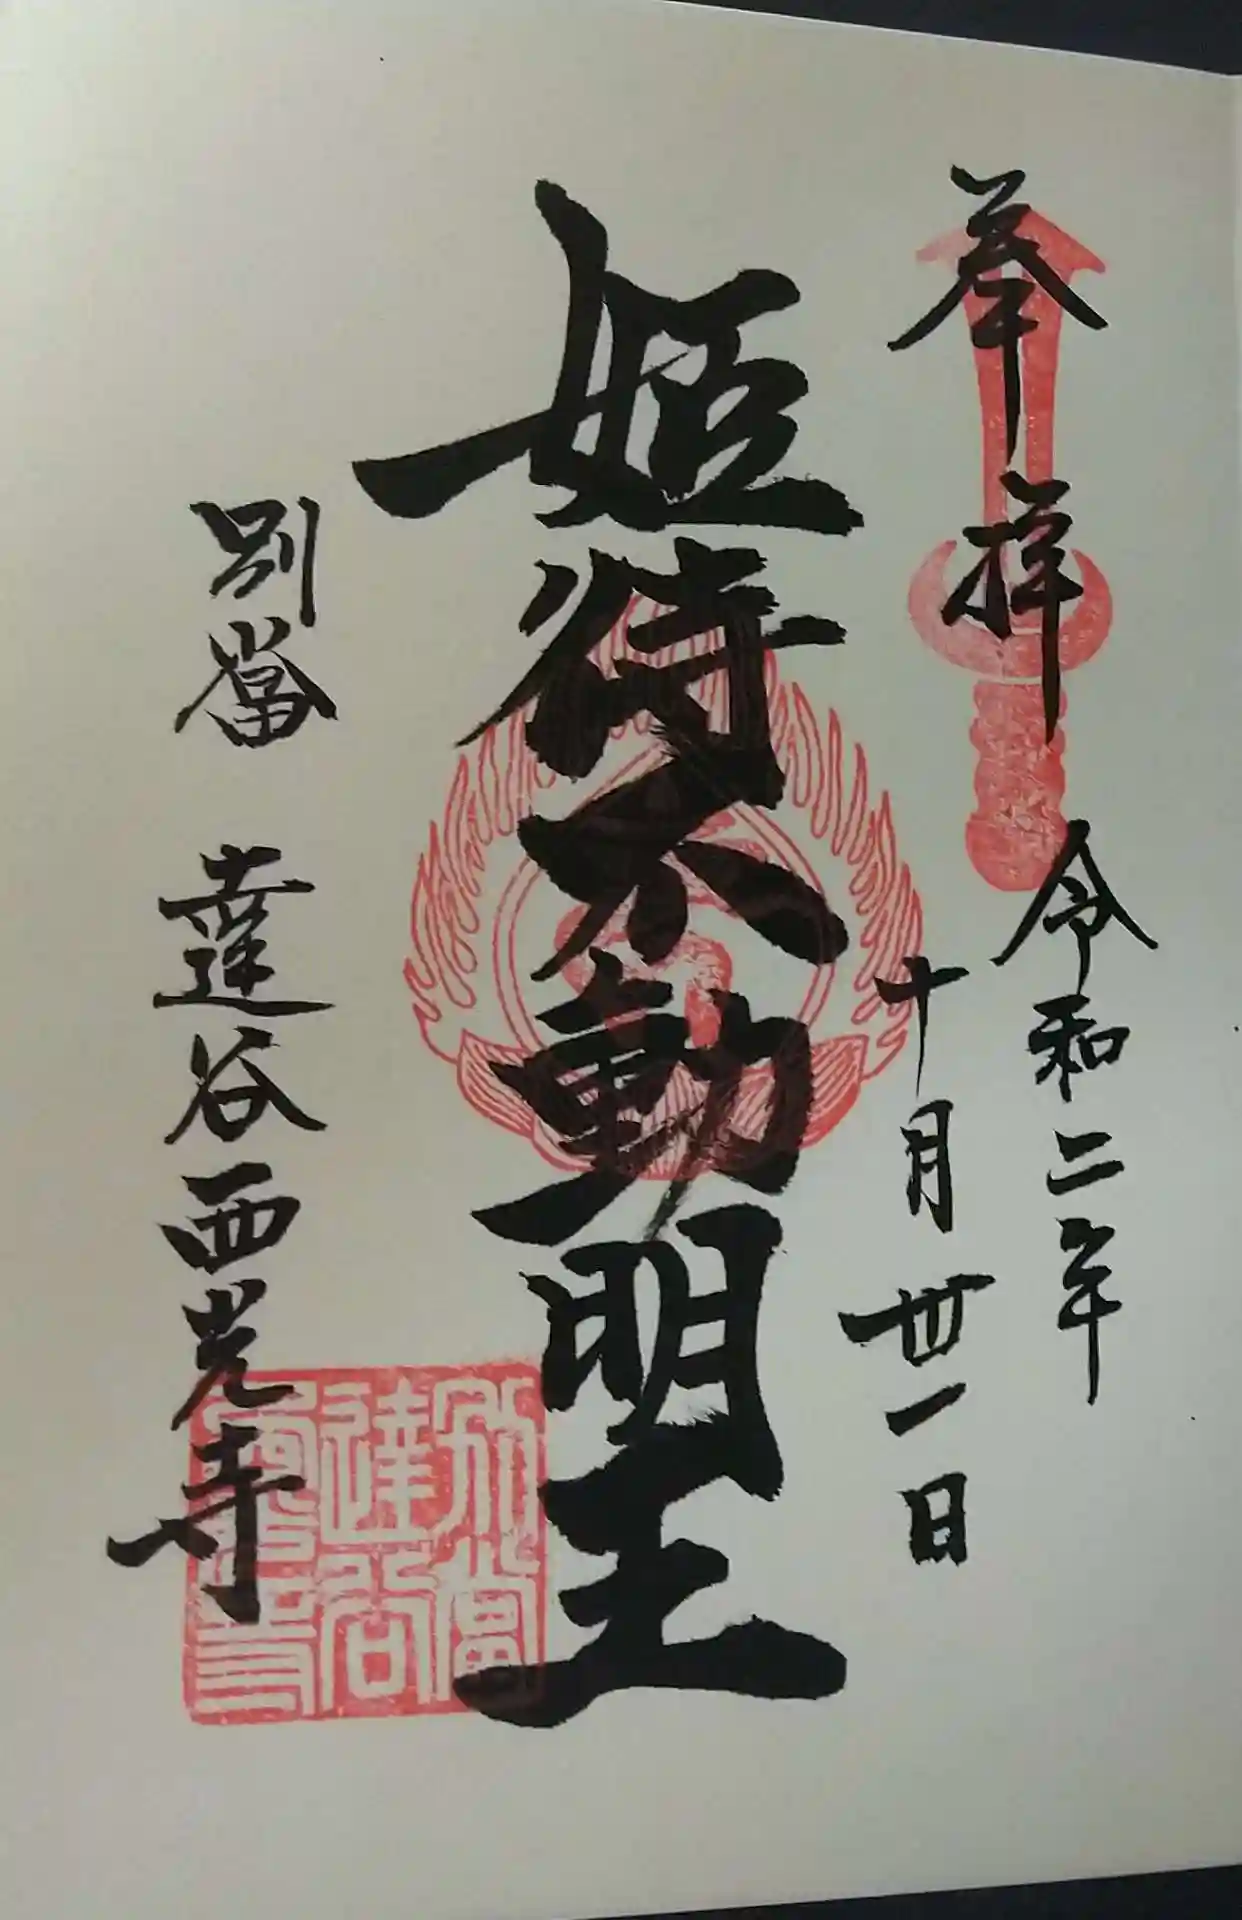 奉拝
令和二年
十月丗一日
姫待不動明王
別當 達谷西光寺
別當
達谷